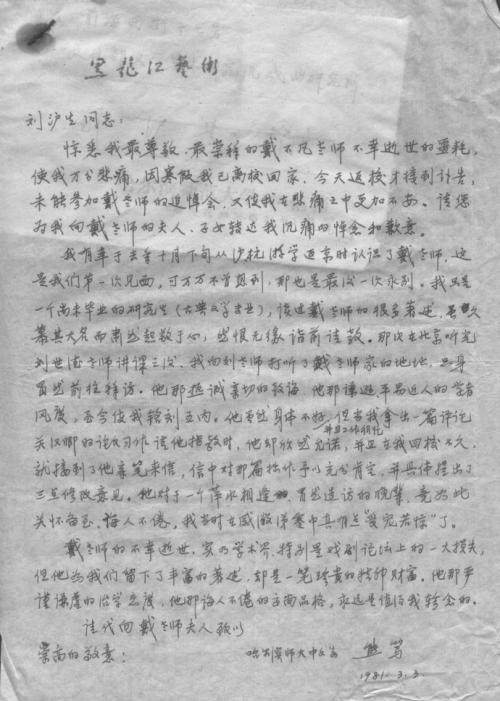 黑龙江艺术
刘沪生同志：
惊悉我最尊敬、最崇拜的戴不凡老师不幸逝世的噩耗，
使我万分悲痛，因寒假我已离校回家，今天返校才接到讣告，
未能参加戴老师的追悼会，又使我在悲痛之中更加不安。请您
为我向戴老师的夫人、子女转达我沉痛的悼念和歉意。
我有幸于去年十月下旬从沪杭游学返京时认识了戴老师，这
是我们第一次见面，可万万不曾想到，那也是最后一次永别。我只是
一个尚未毕业的研究生（古典文学专业），读过戴老师的很多著述，久
慕其大名而肃然起敬于心，然恨无缘诣前请教。那次在北京听完
刘世德老师讲课之后，我向刘老师打听了戴老师家的地址，只身
冒然前往拜访。他那热诚亲切的教诲，他那谦逊平易近人的学者
风度，至今使我铭刻五内。他虽然身体不好，但当我拿出一篇评论
并且工作很忙
关汉卿的论文习作请他指教时，他却欣然允诺，并且在我回校不久，
就接到了他亲笔来信，信中对那篇拙作予以充分肯定，并具体提出了
三点修改意见。他对于一个萍水相逢、冒然造访的晚辈，竟如此
关怀备至，诲人不倦，我当时在感激涕零中真有点“受宠若惊”了。
戴老师的不幸逝世，实乃学术界、特别是戏剧论坛上的一大损失，
但他为我们留下了丰富的著述，却是一笔珍贵的精神财富。他那严
谨谦虚的治学态度，他那诲人不倦的高尚品格，永远是值得我铭念的。
请代向戴老师夫人致以
崇高的敬意！
哈尔滨师大中文系 熊笃
1981.3.3.